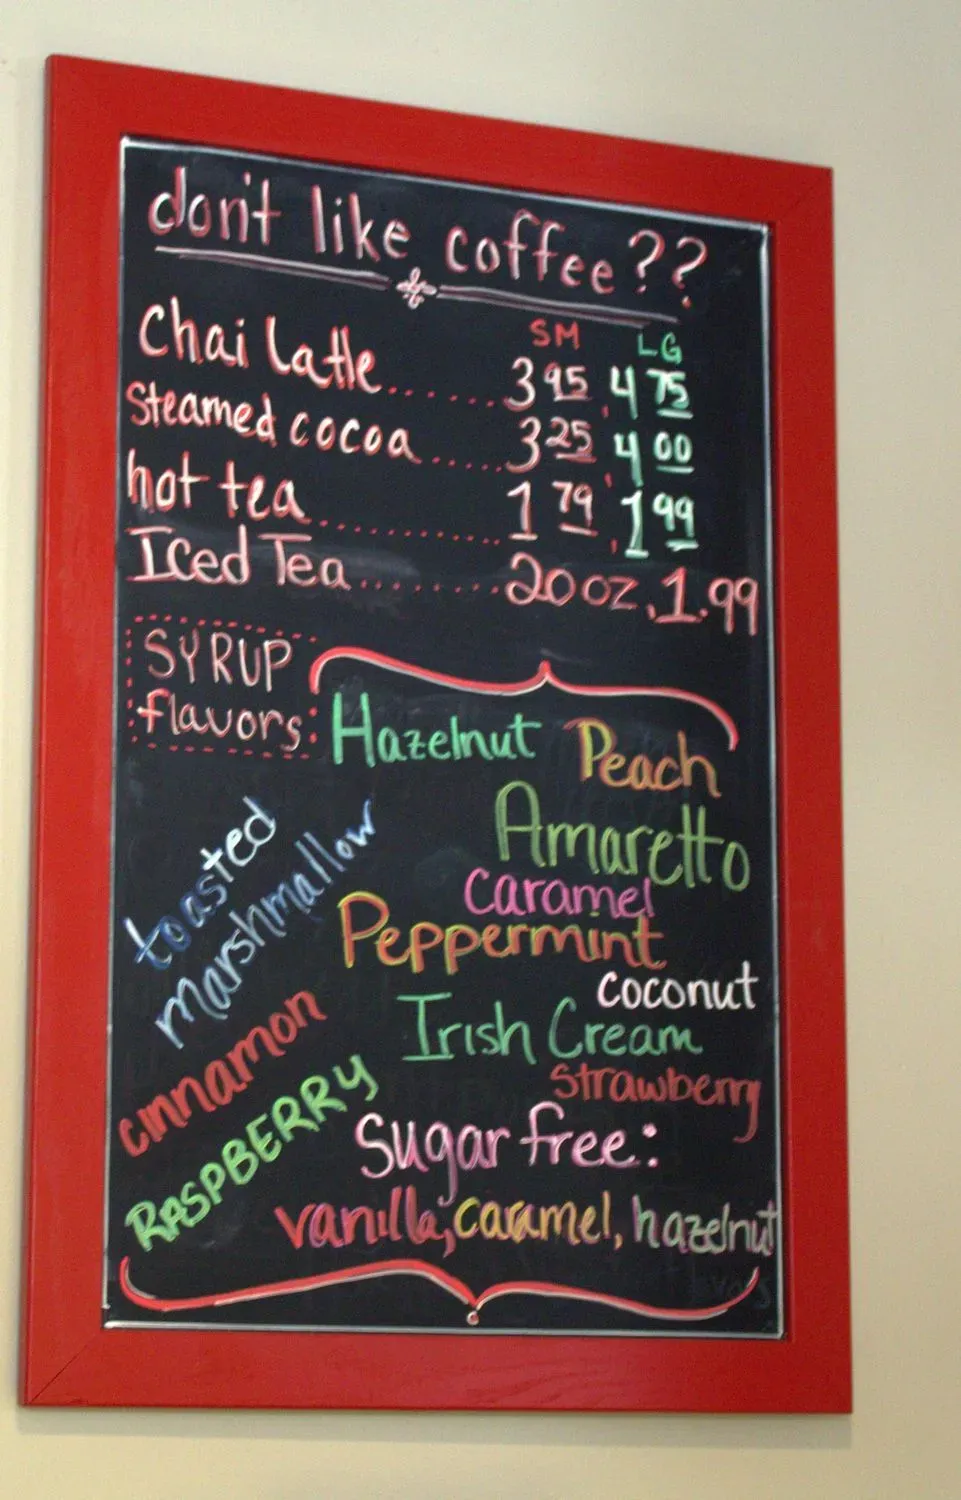 don't like coffee??
SM LG
Chai Latte...... 3 95, 4 75
Steamed cocoa..... 3 25, 4 00
hot tea.......... 1 79, 1 99
Iced Tea........ 20 oz, 1.99
SYRUP
flavors:
Hazelnut
Peach
Amaretto
toasted
marshmallow
caramel
Peppermint
coconut
cinnamon
Irish Cream
strawberry
RASPBERRY
Sugar free:
vanilla, caramel, hazelnut